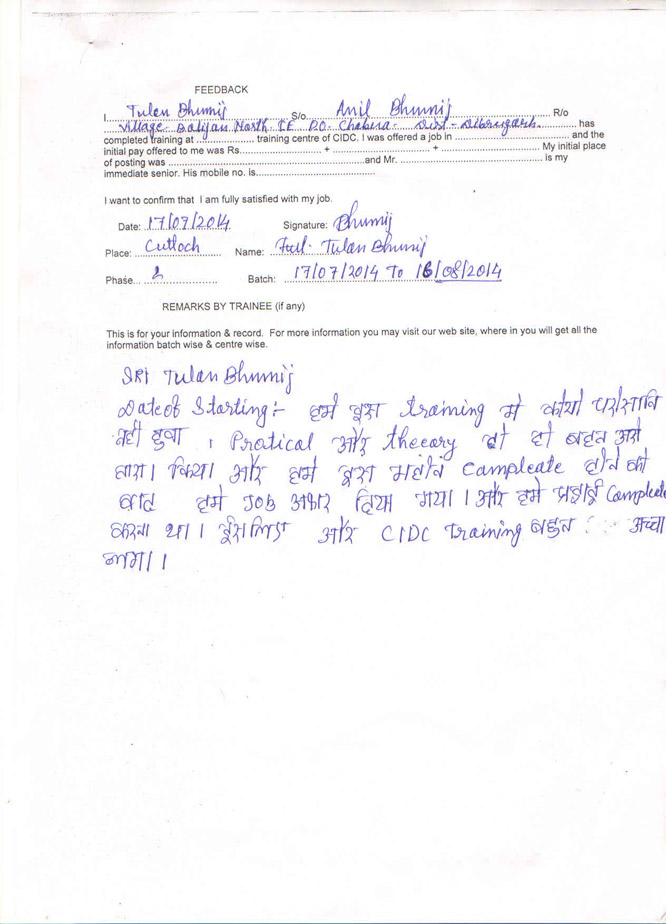 FEEDBACK
I Tulan Bhumij S/o Anil Bhumij R/o
Village Balijan North T.E P.O- Chabua- Dist- Dibrugarh. has
completed training at ............ training centre of CIDC. I was offered a job in ............ and the
initial pay offered to me was Rs............ + ............ + ............ My initial place
of posting was ............ and Mr. ............ is my
immediate senior. His mobile no. is............
I want to confirm that I am fully satisfied with my job.
Date: 17/07/2014 Signature: Bhumij
Place: Cuttoch Name: Tulan Bhumij
Phase... 2 Batch: 17/07/2014 To 16/08/2014
REMARKS BY TRAINEE (if any)
This is for your information & record. For more information you may visit our web site, where in you will get all the
information batch wise & centre wise.
SRI Tulan Bhumij
Date of Starting:- हमे इस training मे कोयो परोसानि
नही हुवा । Pratical और theeory
किया और हमे इस महोने Campleate होने को
बाद हमे JOB अफार दिया गया । और हमे पड़ाई Campleate
करना था । ईसलिए और CIDC Training बहुत अच्चा
लागा ।